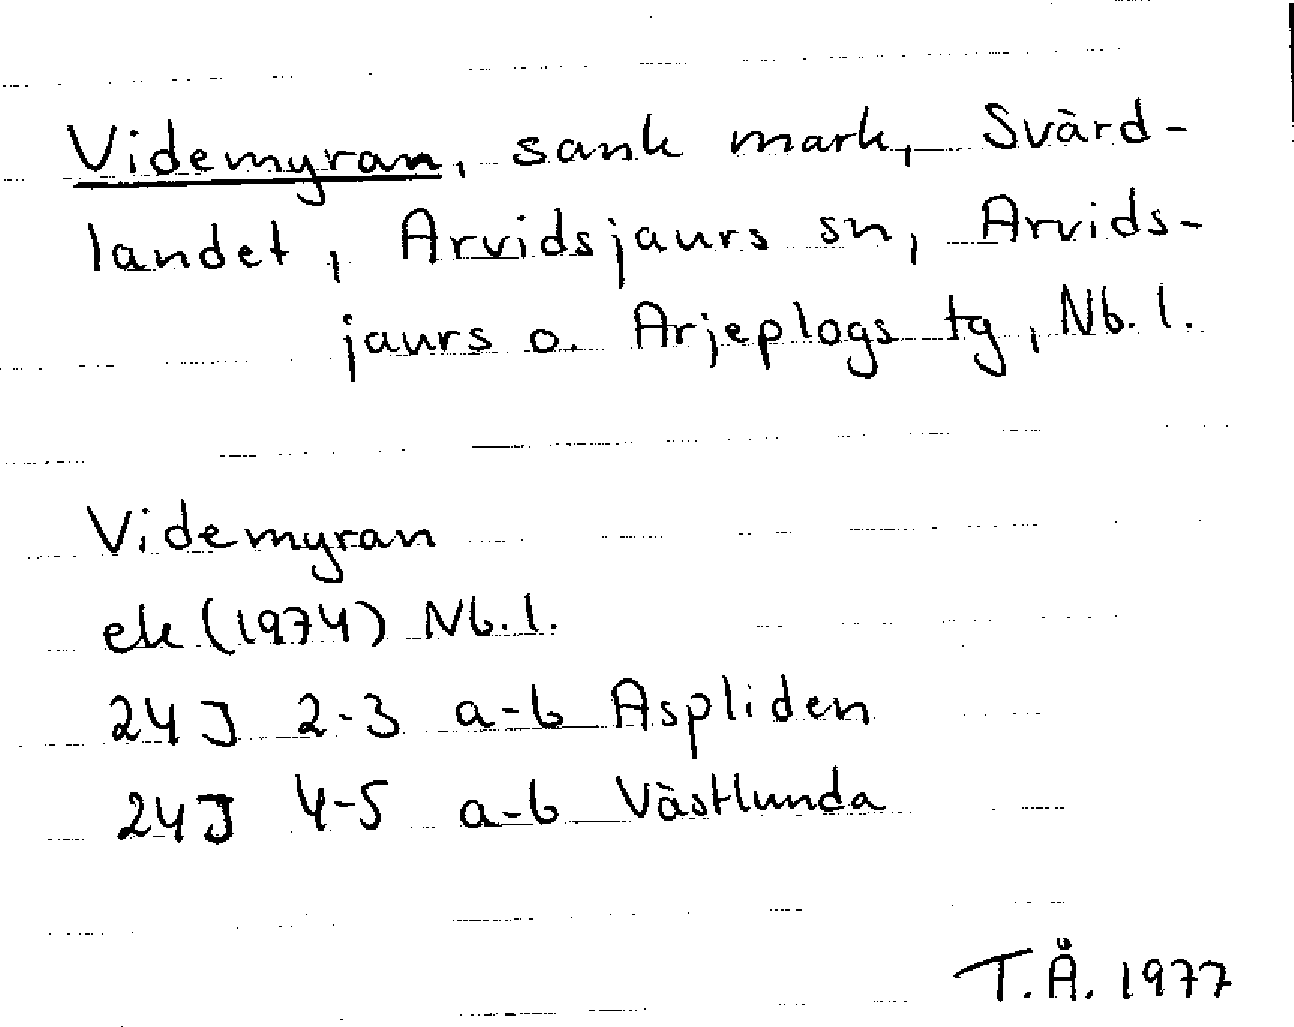 Videmyran, sank mark, Svärd-
landet, Arvidsjaurs sn, Arvids-
jaurs o. Arjeplogs tg, Nb. l.
Videmyran
ek (1974) Nb. l.
24J 2-3 a-b Aspliden
24J 4-5 a-b Västlunda
T.Å. 1977